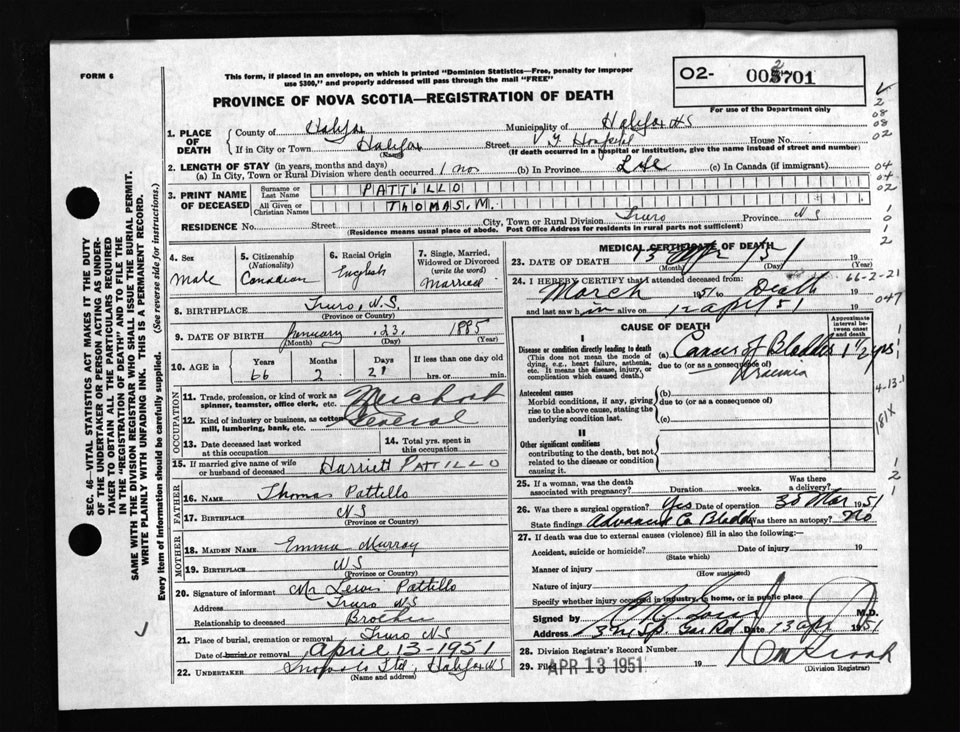 FORM 6
This form, if placed in an envelope, on which is printed "Dominion Statistics—Free, penalty for improper
use $300," and properly addressed will pass through the mail "FREE"
02- 002701
For use of the Department only
PROVINCE OF NOVA SCOTIA—REGISTRATION OF DEATH
1. PLACE OF DEATH
County of Halifax Municipality of Halifax NS
If in City or Town Halifax Street V G Hospital House No.
(Name) (If death occurred in a hospital or institution, give the name instead of street and number)
2. LENGTH OF STAY (in years, months and days)
(a) In City, Town or Rural Division where death occurred 1 mo (b) In Province Life (c) In Canada (if immigrant)
3. PRINT NAME OF DECEASED
Surname or Last Name PATTILLO
All Given or Christian Names THOMAS. M.
RESIDENCE No. Street City, Town or Rural Division Truro Province NS
(Residence means usual place of abode. Post Office Address for residents in rural parts not sufficient)
4. Sex
Male
5. Citizenship
(Nationality)
Canadian
6. Racial Origin
English
7. Single, Married,
Widowed or Divorced
(write the word)
Married
8. BIRTHPLACE Truro, N.S.
(Province or Country)
9. DATE OF BIRTH January 23 1885
(Month) (Day)
10. AGE in
Years Months Days If less than one day old
66 2 21 hrs. or min.
OCCUPATION
11. Trade, profession, or kind of work as
spinner, teamster, office clerk, etc. Merchant
12. Kind of industry or business, as cotton
mill, lumbering, bank, etc. General
13. Date deceased last worked
at this occupation
14. Total yrs. spent in
this occupation
15. If married give name of wife
or husband of deceased Harriett PATTILLO
FATHER
16. Name Thomas Pattillo
17. Birthplace NS
(Province or Country)
MOTHER
18. Maiden Name Emma Murray
19. Birthplace NS
(Province or Country)
20. Signature of informant Mr Lewis Pattillo
Address Truro NS
Relationship to deceased Brother
21. Place of burial, cremation or removal Truro NS
Date of burial or removal April 13-1951
22. Undertaker Ltd, Halifax NS
(Name and address)
MEDICAL CERTIFICATE OF DEATH
23. DATE OF DEATH 13 Apr /51 19
(Month) (Day) (Year)
24. I HEREBY CERTIFY that I attended deceased from:
March 1951 to Death 19
and last saw h im alive on 12 April 51 19
CAUSE OF DEATH
Approximate interval between onset and death
I
Disease or condition directly leading to death
(This does not mean the mode of
dying, e.g., heart failure, asthenia,
etc. It means the disease, injury, or
complication which caused death.)
(a) Cancer of Bladder 1 1/2 yrs
due to (or as a consequence of)
Uraemia
Antecedent causes
Morbid conditions, if any, giving
rise to the above cause, stating the
underlying condition last.
(b)
due to (or as a consequence of)
(c)
II
Other significant conditions
contributing to the death, but not
related to the disease or condition
causing it.
25. If a woman, was the death
associated with pregnancy? Duration weeks. Was there a delivery?
26. Was there a surgical operation? Yes Date of operation 30 Mar 1951
State findings Advanced Ca Bladder Was there an autopsy? No
27. If death was due to external causes (violence) fill in also the following:—
Accident, suicide or homicide? Date of injury 19
(State which)
Manner of injury
(How sustained)
Nature of injury
Specify whether injury occurred in industry, in home, or in public place
Signed by M.D.
Address Date 13 Apr 1951
28. Division Registrar's Record Number
29. Filed APR 13 1951 19
(Division Registrar)
SEC. 46—VITAL STATISTICS ACT MAKES IT THE DUTY
OF THE UNDERTAKER OR PERSON ACTING AS UNDER-
TAKER TO OBTAIN ALL THE PARTICULARS REQUIRED
IN THE "REGISTRATION OF DEATH" AND TO FILE THE
SAME WITH THE DIVISION REGISTRAR WHO SHALL ISSUE THE BURIAL PERMIT.
WRITE PLAINLY WITH UNFADING INK. THIS IS A PERMANENT RECORD.
Every item of information should be carefully supplied. (See reverse side for instructions.)
2
08
08
02
04
04
02
1
0
1
2
66-2-21
047
4-13-1
181X
1
2
1